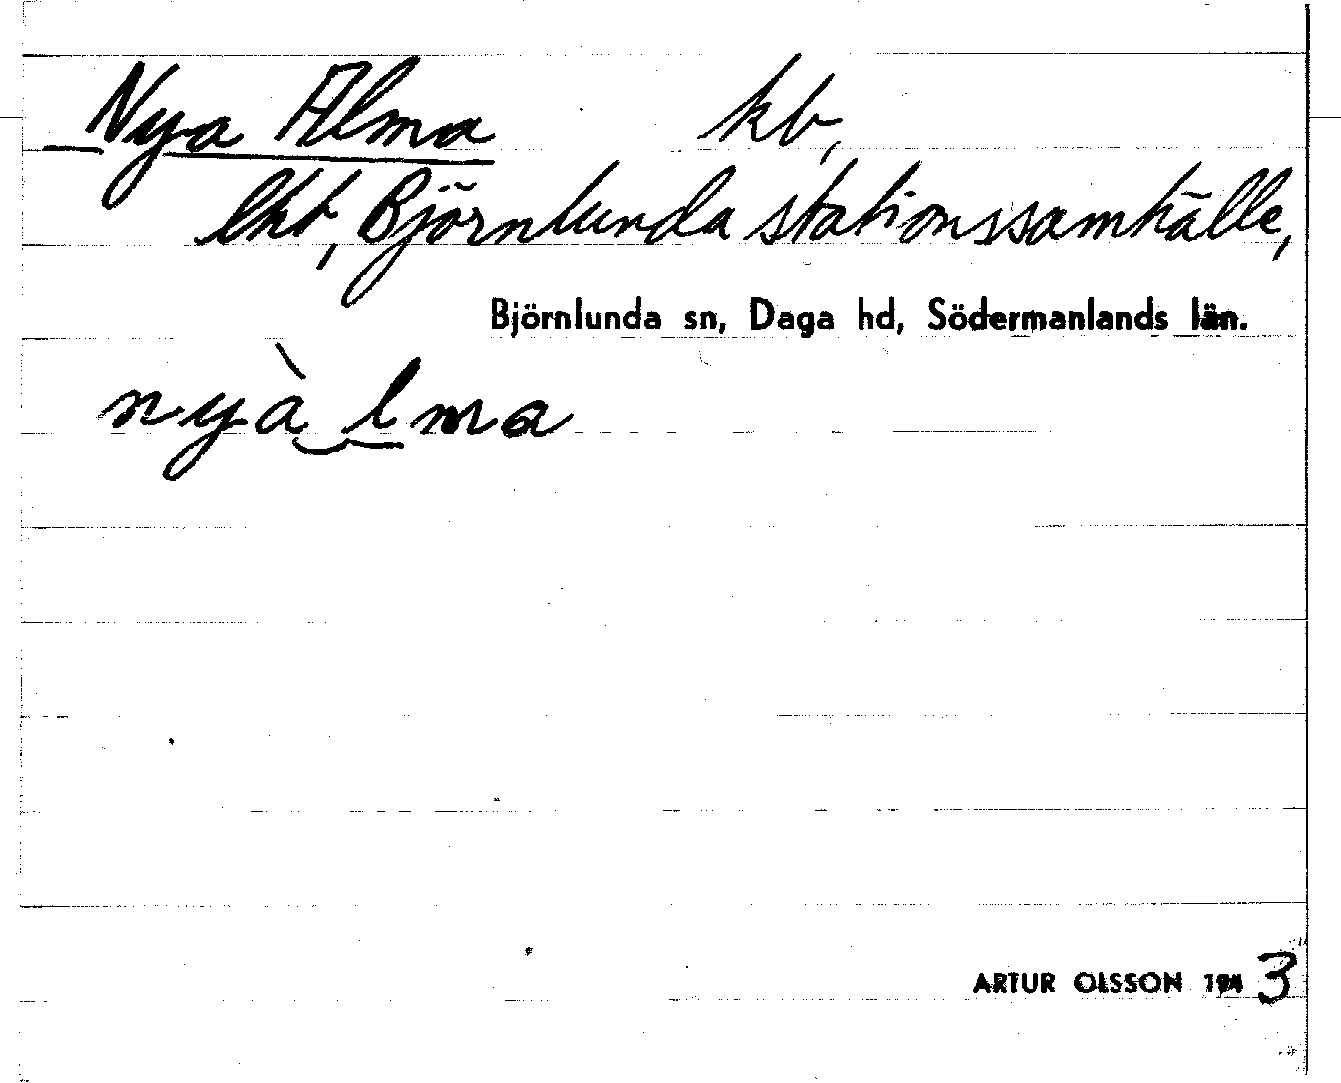 Nya Alma kb,
lht, Björnlunda stationssamhälle,
Björnlunda sn, Daga hd, Södermanlands län.
nyà lma
ARTUR OLSSON 1943